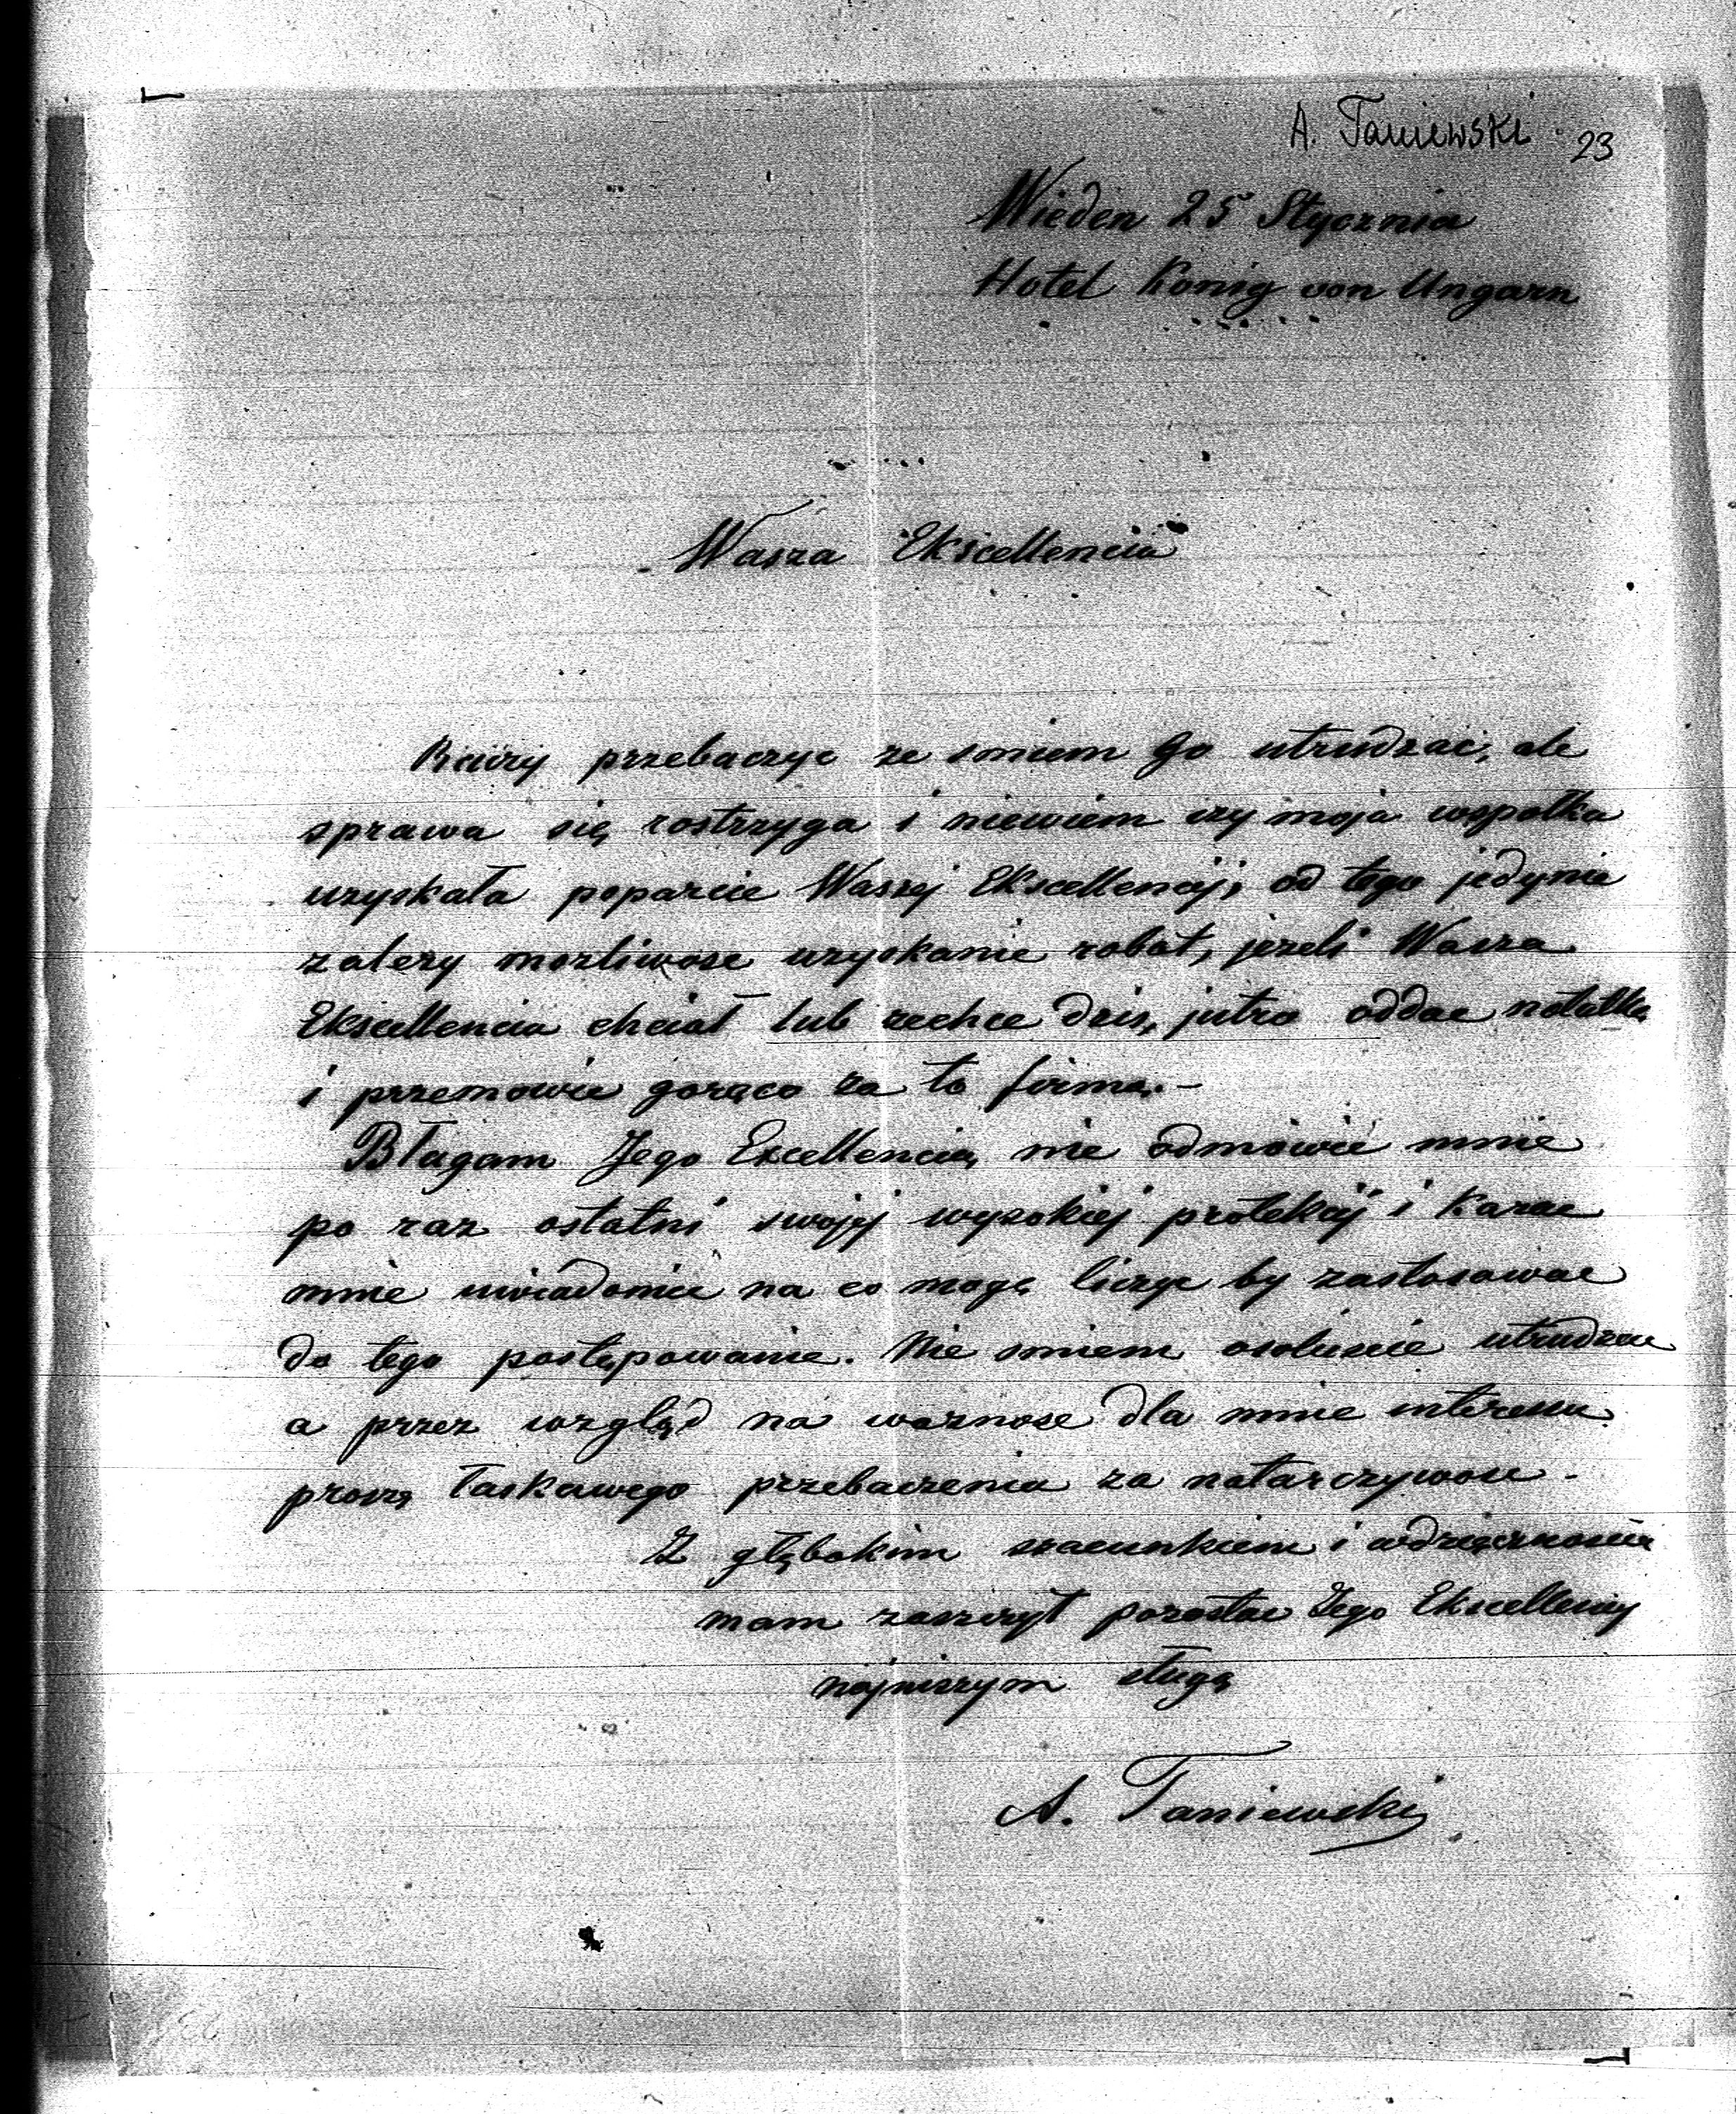 A. Taniewski 23
Wieden 25 Stycznia
Hotel König von Ungarn
Wasza Ekscellencia
Raczy przebaczyc ze smiem Go utrudzac, ale
sprawa się rostrzyga i niewiem czy moja wspolka
uzyskała poparcie Waszej Ekscellencij, od tego jedynie
zalezy mozliwosc uzyskanie robot, jezeli Wasza
Ekscellencia chciał lub zechce dzis, jutro oddac notatkę
i przemowic gorąco za tą firmą. –
Błagam Jego Excellencię, nie odmówic mnie
po raz ostatni swojej wysokiej protekcij i kazac
mnie uwiadomic na co mogę liczyc by zastosowac
do tego postępowanie. Nie smiem osobiscie utrudzac
a przez wzgląd na waznosc dla mnie interesu
proszę łaskawego przebaczenia za natarczywosc –
Z głębokim szacunkiem i wdzięcznoscią
mam zaszczyt pozostac Jego Ekscellencij
najniszym sługą
A. Taniewski